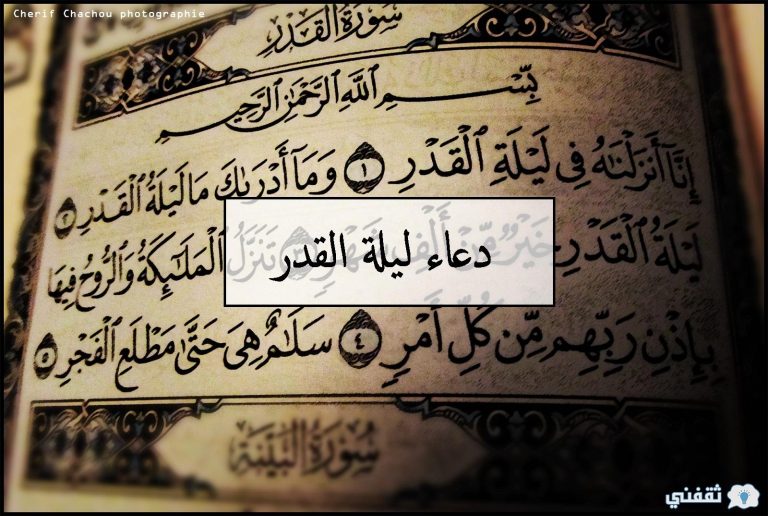 Cherif Chachou photographie
سُورَةُ القَدْرِ
بِسْمِ ٱللَّهِ ٱلرَّحْمَٰنِ ٱلرَّحِيمِ
إِنَّآ أَنزَلْنَٰهُ فِى لَيْلَةِ ٱلْقَدْرِ ١ وَمَآ أَدْرَىٰكَ مَا لَيْلَةُ ٱلْقَدْرِ ٢
لَيْلَةُ ٱلْقَدْرِ خَيْرٌ مِّنْ أَلْفِ شَهْرٍ ٣ تَنَزَّلُ ٱلْمَلَٰٓئِكَةُ وَٱلرُّوحُ فِيهَا
دعاء ليلة القدر
بِإِذْنِ رَبِّهِم مِّن كُلِّ أَمْرٍ ٤ سَلَٰمٌ هِىَ حَتَّىٰ مَطْلَعِ ٱلْفَجْرِ ٥
سُورَةُ البَيِّنَةِ
ثقفني